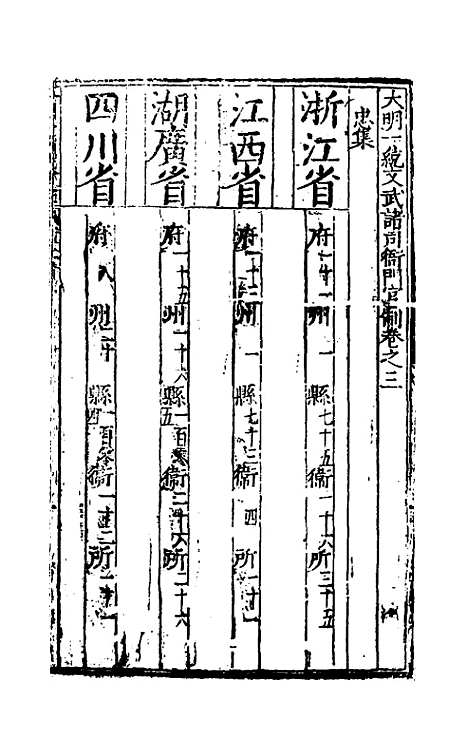 大明一統文武諸司衙門官制卷之三
忠集
浙江省 府十一 州一 縣七十五 衛一十六 所三十五
江西省 府十三 州一 縣七十三 衛四 所一十一
湖廣省 府一十五 州一十六 縣一百零五 衛二十六 所二十六
四川省 府八 州二十 縣一百零四 衛一十二 所一十一